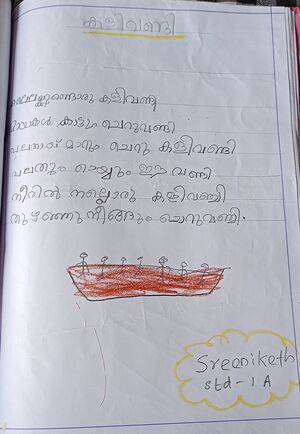 കളിവണ്ടി
കളിവണ്ടി
കാട്ടും ചെറുവണ്ടി
പലതായ് മാറും ചെറു കളിവണ്ടി
പലതും ചെയ്യും ഈ വണ്ടി
നീരിൽ നല്ലൊരു കളിവഞ്ചി
തുഴഞ്ഞുനീങ്ങും ചെറുവഞ്ചി.
Sreeniketh
std-1 A